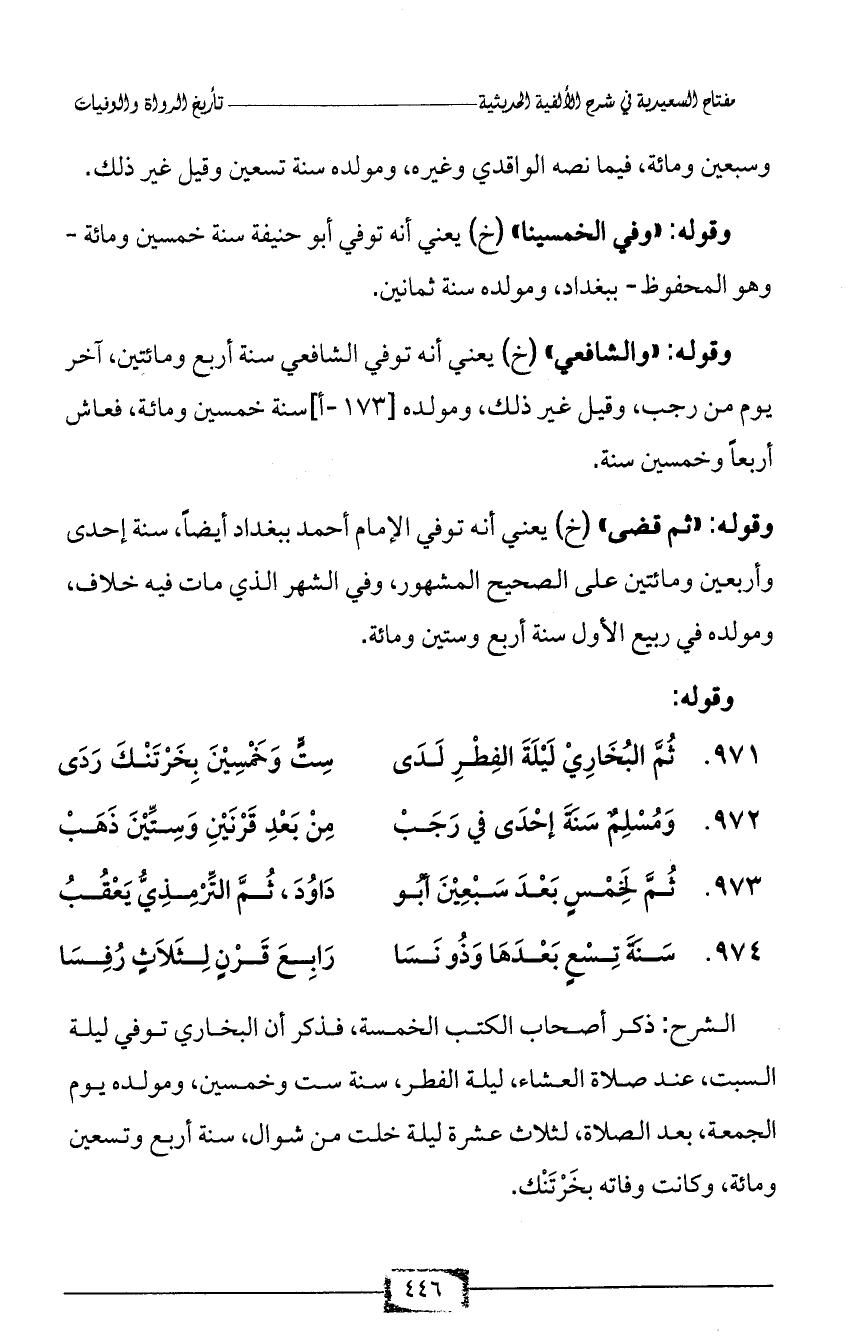 مفتاح السعيدية في شرح الألفية الحديثية تأريخ الرواة والوفيات
وسبعين ومائة، فيما نصه الواقدي وغيره، ومولده سنة تسعين وقيل غير ذلك.
وقوله: «وفي الخمسينا» (خ) يعني أنه توفي أبو حنيفة سنة خمسين ومائة -
وهو المحفوظ - ببغداد، ومولده سنة ثمانين.
وقوله: «والشافعي» (خ) يعني أنه توفي الشافعي سنة أربع ومائتين، آخر
يوم من رجب، وقيل غير ذلك، ومولده [١٧٣ -أ] سنة خمسين ومائة، فعاش
أربعاً وخمسين سنة.
وقوله: «ثم قضى» (خ) يعني أنه توفي الإمام أحمد ببغداد أيضاً، سنة إحدى
وأربعين ومائتين على الصحيح المشهور، وفي الشهر الذي مات فيه خلاف،
ومولده في ربيع الأول سنة أربع وستين ومائة.
وقوله:
٩٧١. ثُمَّ البُخَارِيْ لَيْلَةَ الفِطْرِ لَدَى سِتٍّ وَخَمْسِيْنَ بِخَرْتَنْكَ رَدَى
٩٧٢. وَمُسْلِمٌ سَنَةَ إحْدَى في رَجَبْ مِنْ بَعْدِ قَرْنَيْنِ وَسِتِّيْنَ ذَهَبْ
٩٧٣. ثُمَّ لِخَمْسٍ بَعْدَ سَبْعِيْنَ أبُو دَاوُدَ، ثُمَّ التِّرْمِذِيُّ يَعْقُبُ
٩٧٤. سَنَةَ تِسْعٍ بَعْدَهَا وَذُو نَسَا رَابِعَ قَرْنٍ لِثَلاَثٍ رُفِسَا
الشرح: ذكر أصحاب الكتب الخمسة، فذكر أن البخاري توفي ليلة
السبت، عند صلاة العشاء، ليلة الفطر، سنة ست وخمسين، ومولده يوم
الجمعة، بعد الصلاة، لثلاث عشرة ليلة خلت من شوال، سنة أربع وتسعين
ومائة، وكانت وفاته بخَرْتَنْك.
٤٤٦